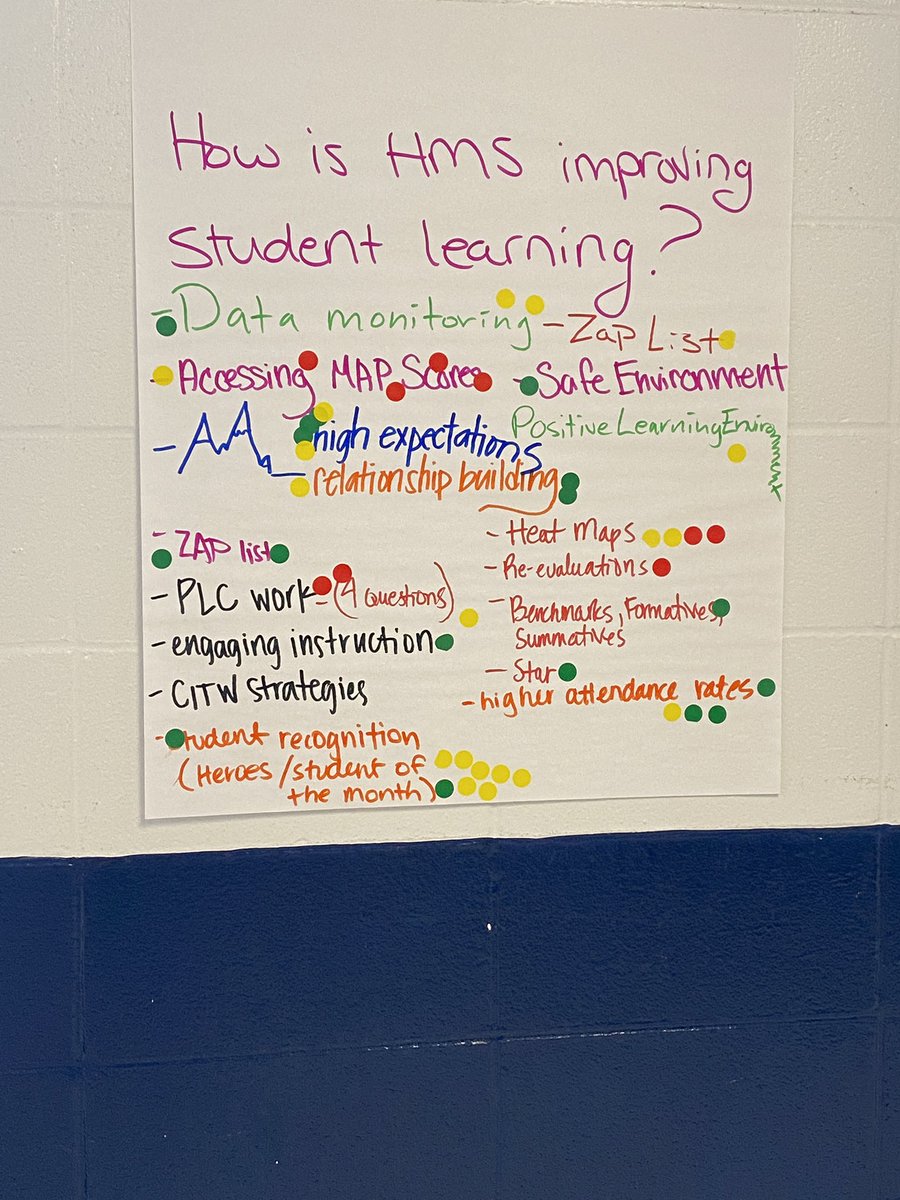 How is HMS improving
student learning?
- Data monitoring
- Zap List
- Accessing MAP Scores
- Safe Environment
- AA
- high expectations
Positive Learning Environment
- relationship building
- ZAP list
- PLC work - (4 Questions)
- engaging instruction
- CITW strategies
- Student recognition
(Heroes/student of
the month)
- Heat Maps
- Re-evaluations
- Benchmarks, Formatives,
Summatives
- Star
- higher attendance rates